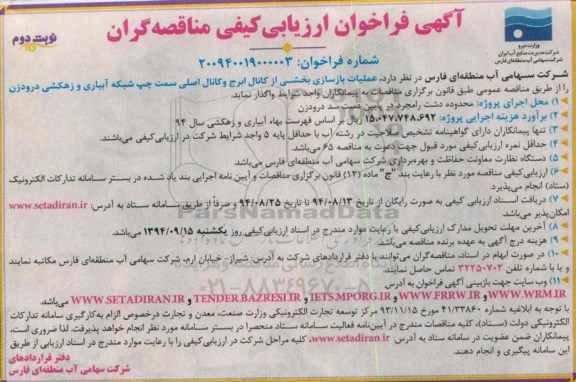 آگهی فراخوان ارزیابی کیفی مناقصه‌گران
نوبت دوم
وزارت نیرو
شرکت مدیریت منابع آب ایران
شرکت سهامی آب منطقه‌ای فارس
شماره فراخوان: ۲۰۰۹۴۰۰۱۹۰۰۰۰۰۳
شرکت سهامی آب منطقه‌ای فارس در نظر دارد، عملیات بازسازی بخشی از کانال ابرج وکانال اصلی سمت چپ شبکه آبیاری و زهکشی درودزن
را از طریق مناقصه عمومی طبق قانون برگزاری مناقصات به پیمانکاران واجد شرایط واگذار نماید.
۱) محل اجرای پروژه: محدوده دشت رامجرد در پایین دست سد درودزن
۲) برآورد هزینه اجرایی پروژه: ۱۵۰،۴۷،۷۴۸،۶۹۲ ریال بر اساس فهرست بهاء آبیاری و زهکشی سال ۹۴
۳) تنها پیمانکاران دارای گواهینامه تشخیص صلاحیت در رشته آب با حداقل پایه ۵ واجد شرایط شرکت در ارزیابی کیفی می‌باشند.
۴) حداقل نمره ارزیابی کیفی مورد قبول جهت دعوت به مناقصه ۶۵ می‌باشد.
۵) دستگاه نظارت معاونت حفاظت و بهره‌برداری شرکت سهامی آب منطقه‌ای فارس می‌باشد.
۶) ارزیابی کیفی مناقصه مورد نظر با رعایت بند "ج" ماده (۱۲) قانون برگزاری مناقصات و آیین نامه اجرایی بند یاد شده در بستر سامانه تدارکات الکترونیک
(ستاد) انجام می‌پذیرد.
۷) دریافت اسناد ارزیابی کیفی به صورت رایگان از تاریخ ۹۴/۰۸/۱۳ تا تاریخ ۹۴/۰۸/۲۵ و صرفاً از طریق سامانه ستاد به آدرس: www.setadiran.ir
امکان‌پذیر می‌باشد.
۸) آخرین مهلت تحویل مدارک ارزیابی کیفی با رعایت موارد مندرج در اسناد ارزیابی کیفی روز یکشنبه ۱۳۹۴/۰۹/۱۵ می‌باشد.
۹) هزینه درج آگهی به عهده برنده مناقصه می‌باشد.
۱۰) در صورت ابهام در اسناد، مناقصه‌گران می‌توانند با دفتر قراردادهای شرکت به آدرس: شیراز- خیابان ارم، شرکت سهامی آب منطقه‌ای فارس مکاتبه نمایند
و یا با شماره تلفن ۳۲۲۵۰۷۰۲ تماس حاصل نمایند.
۱۱) وب سایت جهت بازبینی آگهی فراخوان به آدرس
WWW.WRM.IR و WWW.FRRW.IR و IETS.MPORG.IR و TENDER.BAZRESI.IR و WWW.SETADIRAN.IR می‌باشد.
با توجه به ابلاغیه شماره ۴۱/۳۳۸۶۰ مورخ ۹۳/۱۱/۱۵ مرکز توسعه تجارت الکترونیکی وزارت صنعت، معدن و تجارت درخصوص الزام به‌کارگیری سامانه تدارکات
الکترونیکی دولت (ستاد)، کلیه مناقصات مندرج در آیین‌نامه فعالیت سامانه ستاد منحصرا در بستر سامانه مورد نظر انجام خواهد پذیرفت. لذا ضروری است،
پیمانکاران ضمن عضویت در سامانه ستاد به آدرس: www.setadiran.ir، کلیه مراحل شرکت در ارزیابی کیفی را با رعایت موارد مندرج در اسناد ارزیابی از طریق
این سامانه پیگیری و انجام دهند.
دفتر قراردادهای
شرکت سهامی آب منطقه‌ای فارس
ParsNamadData
۰۲۱-۸۸۳۴۹۶۷۰-۵